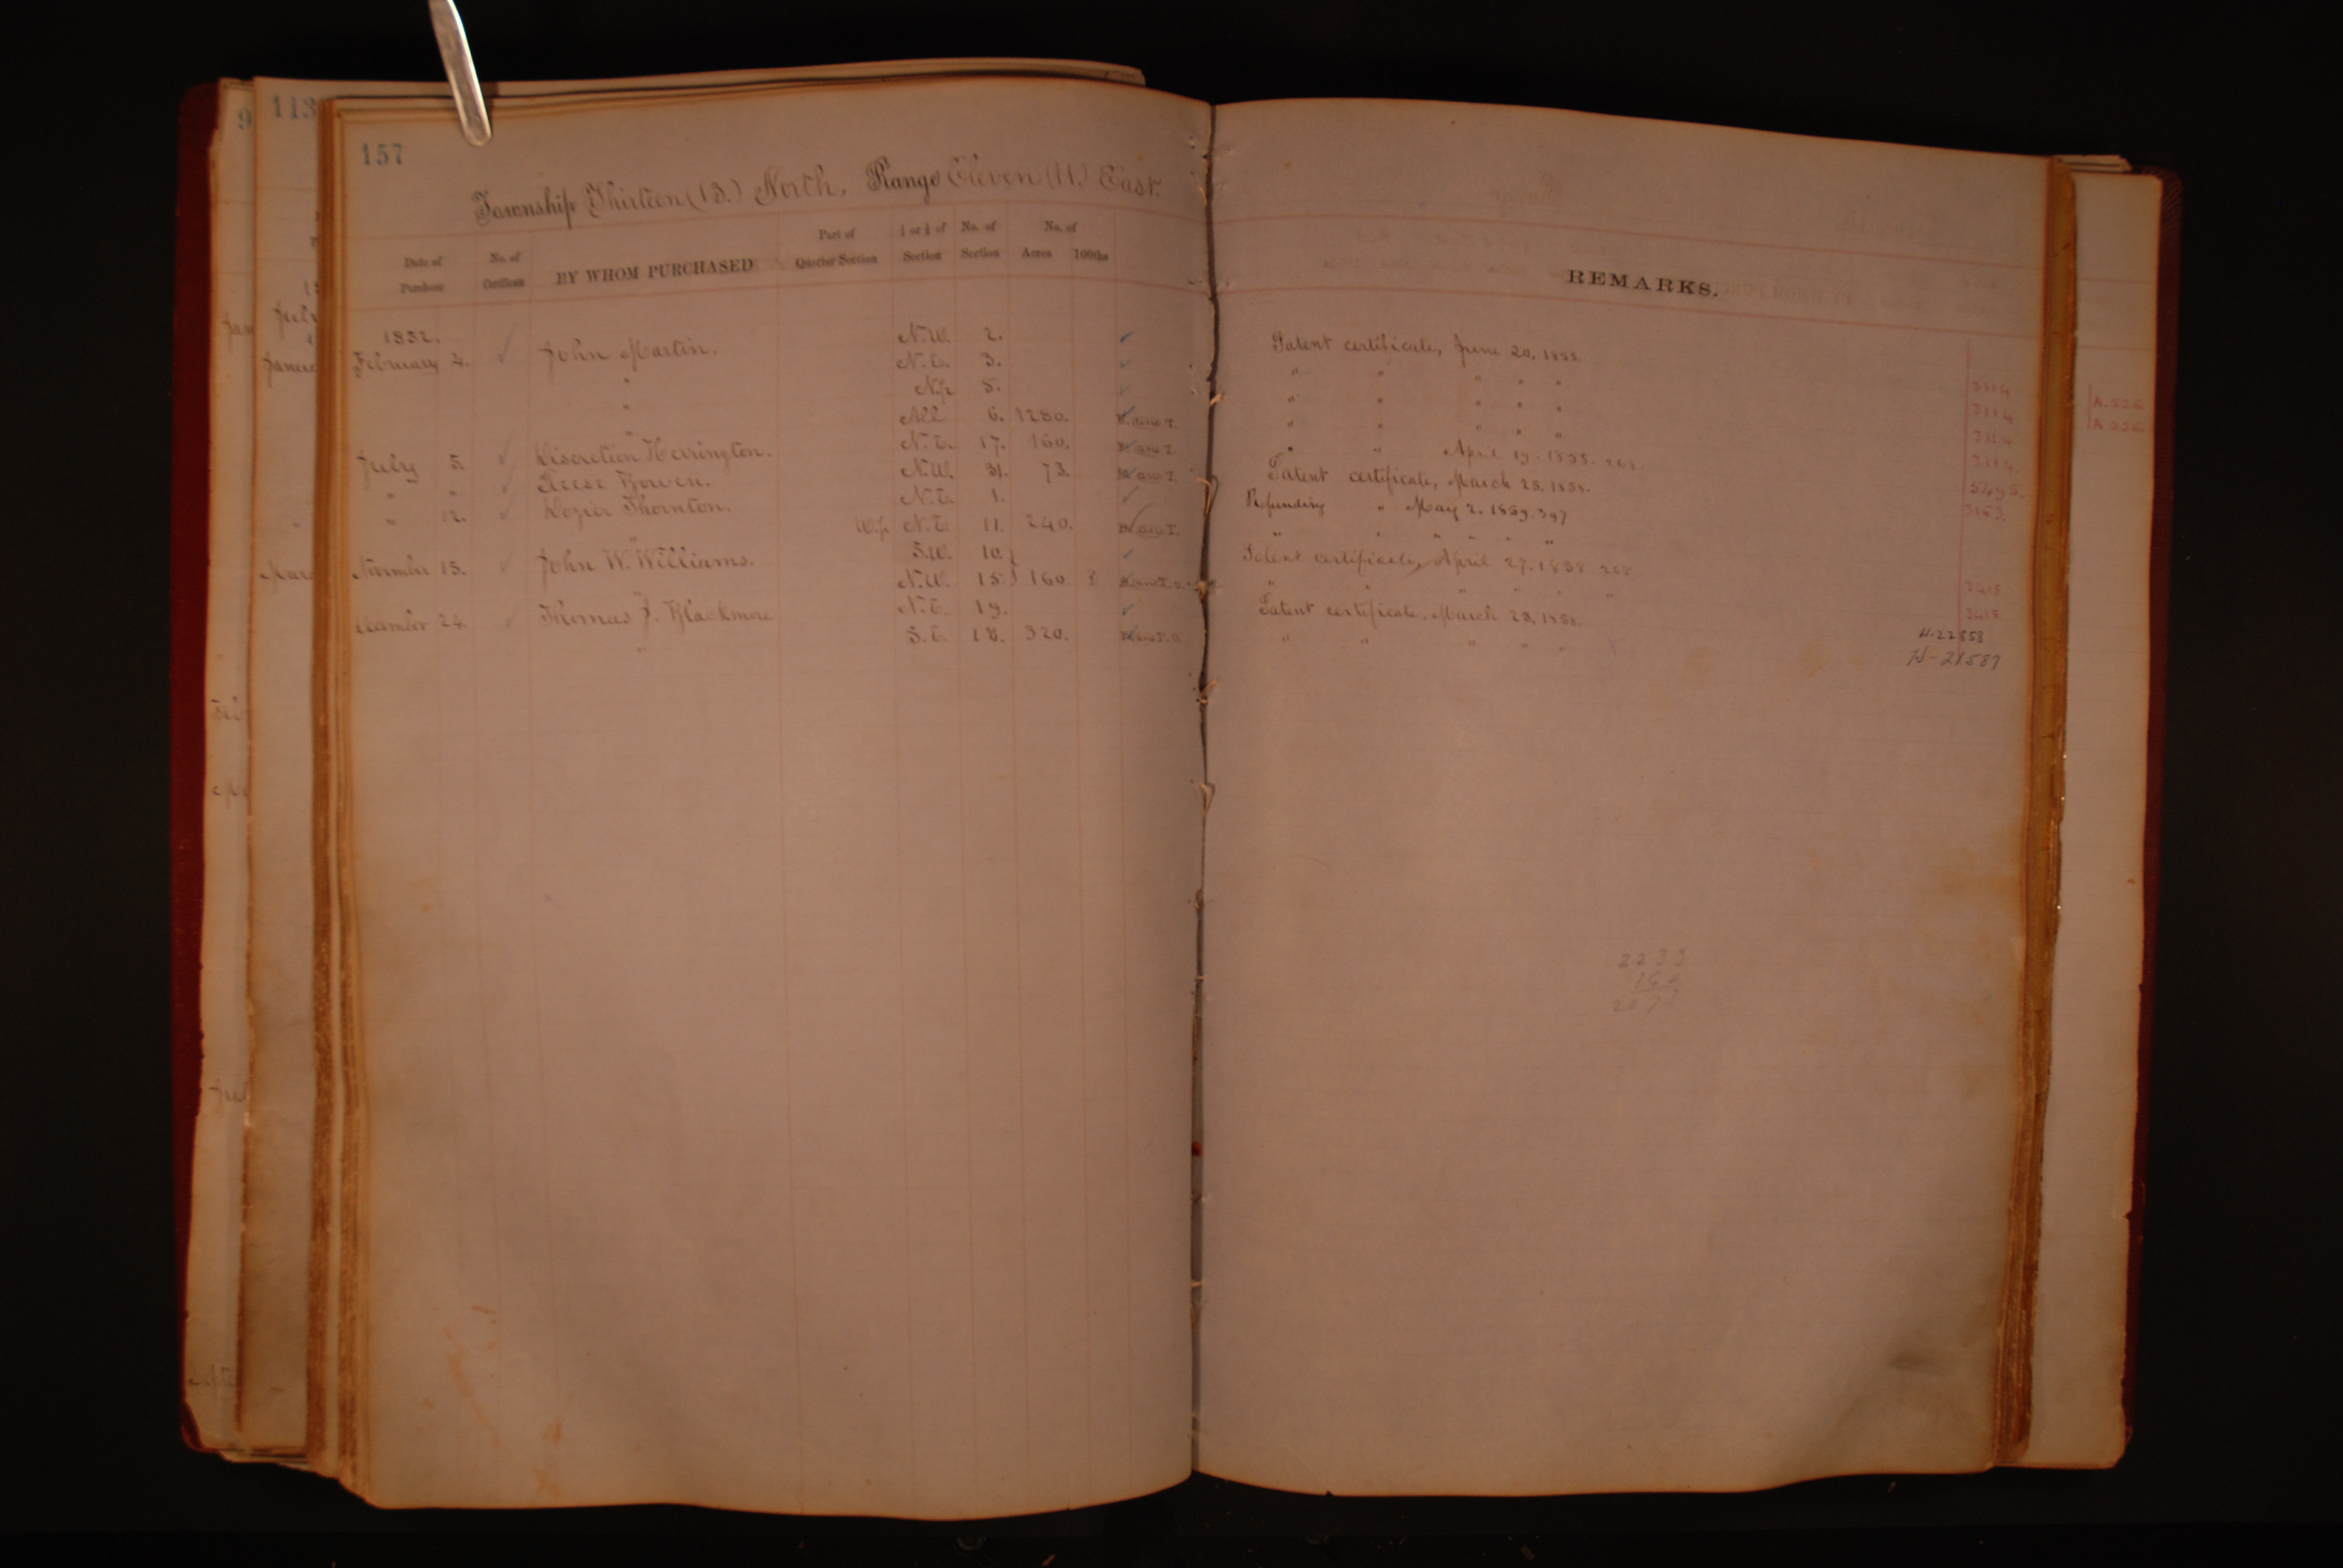 157
Township Thirteen (13.) North, Range Eleven (11.) East.
Date of Purchase No. of Certificate BY WHOM PURCHASED Part of Quarter Section ¼ or ½ of Section No. of Section No. of Acres 100ths
REMARKS.
1852.
February 4. ✓ John Martin. N.W. 2. ✓ Patent certificate, June 20, 1858.
" N.E. 3. ✓ " " " " " 3114
" N½ 5. ✓ " " " " " 3114
" All 6. 1280. " " " " " 3114
July 5. ✓ Discretion Herrington. N.E. 17. 160. " " April 19. 1858. 3114.
" " ✓ Reese Bowen. N.W. 31. 73. Patent certificate, March 23, 1858. 5495.
" 12. ✓ Dozier Thornton. N.E. 1. ✓ Refunding " May 2. 1859. 397 3163.
" W½ N.E. 11. 240. " " " " " "
November 15. ✓ John W. Williams. S.W. 10. ✓ Patent certificate, April 27. 1858
" N.W. 15. 160. 8 " " " " " 3415
December 24. ✓ Thomas J. Blackmore N.E. 19. ✓ Patent certificate, March 23, 1858. 3415
" S.E. 18. 320. " " " " " H-22858
H-21587
2233
2073
113
9
July
A.326
A 326